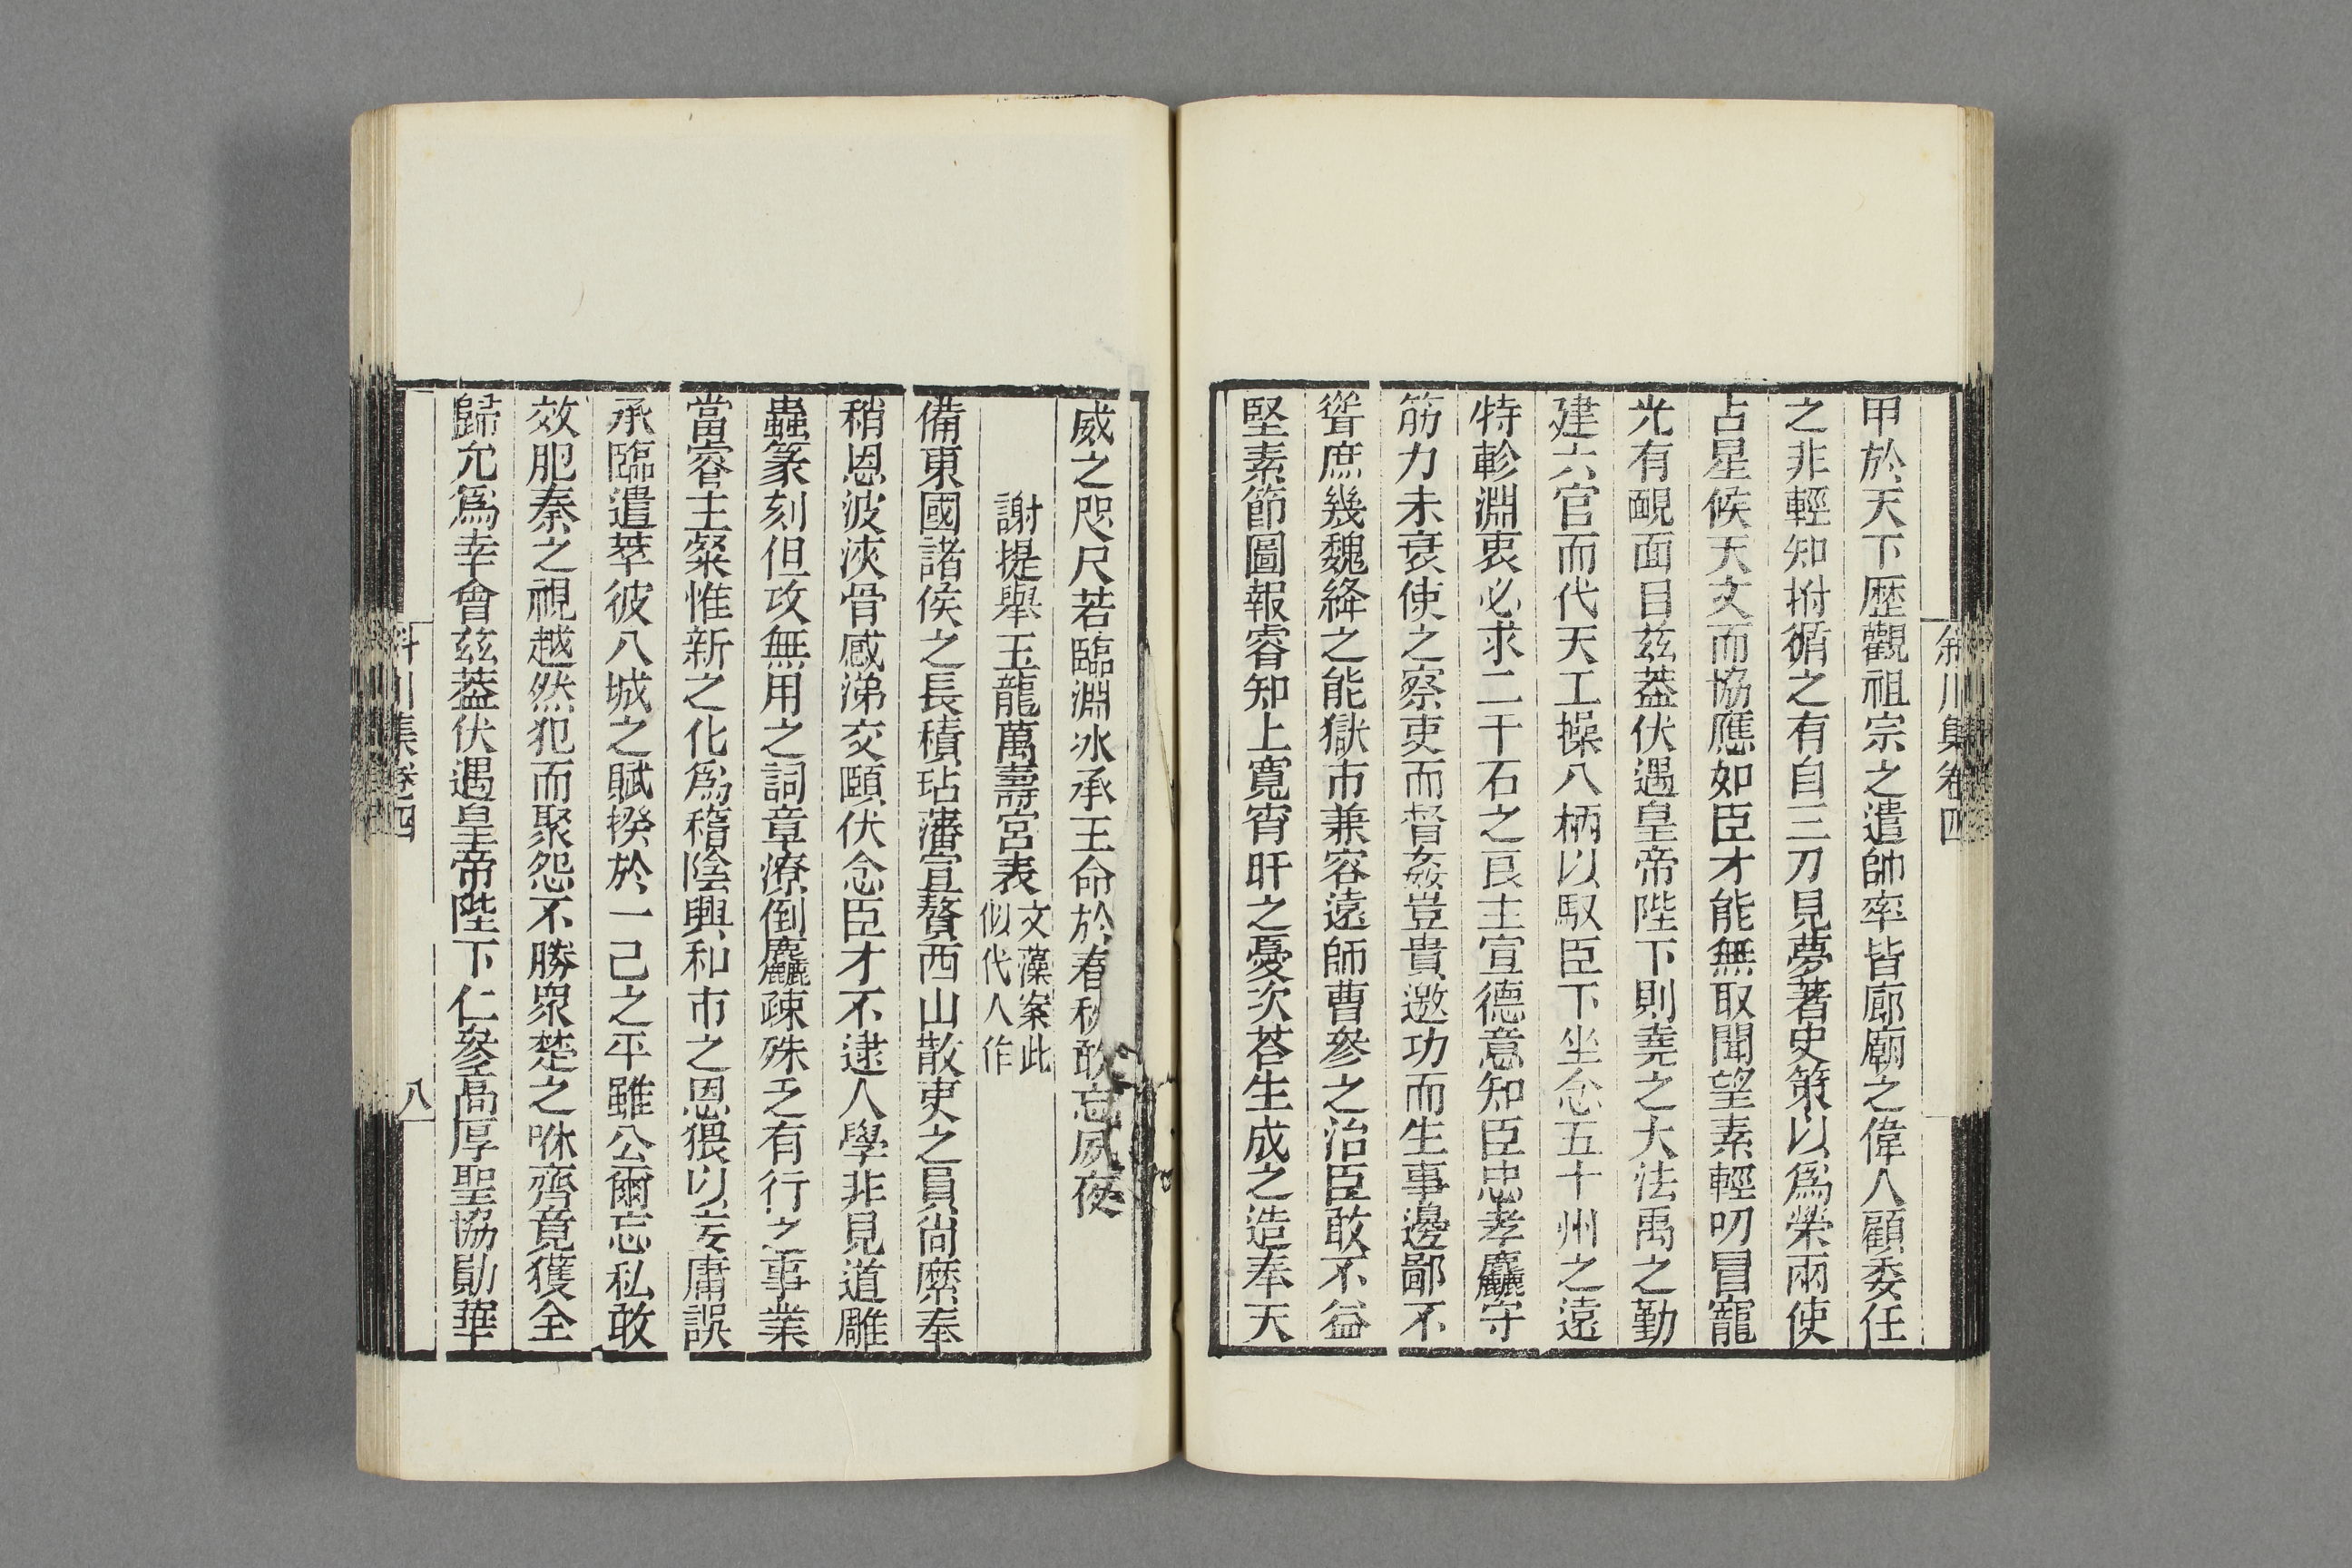 斜川集卷四
甲於天下歴觀祖宗之遣帥率皆廊廟之偉人顧委任
之非輕知拊循之有自三刀見夢著史策以爲榮兩使
占星候天文而協應如臣才能無取聞望素輕叨冒寵
光有靦面目茲葢伏遇皇帝陛下則堯之大法禹之勤
建六官而代天工操八柄以馭臣下坐念五十州之遠
特軫淵衷必求二千石之良主宣德意知臣忠孝麤守
筋力未衰使之察吏而督姦豈貴邀功而生事邊鄙不
聳庶幾魏絳之能獄市兼容遠師曹參之治臣敢不益
堅素節圖報睿知上寬宵旰之憂次荅生成之造奉天
威之咫尺若臨淵冰承王命於春秋敢忘夙夜
謝提舉玉龍萬壽宮表文藻案此似代人作
備東國諸侯之長積玷藩宣贅西山散吏之員尙縻奉
稍恩波浹骨感涕交頤伏念臣才不逮人學非見道雕
蟲篆刻但攻無用之詞章潦倒麤疎殊乏有行之事業
當睿主粲惟新之化爲稽陰興和市之恩猥以妄庸誤
承臨遣萃彼八城之賦揆於一己之平雖公爾忘私敢
效肥秦之視越然犯而聚怨不勝眾楚之咻齊竟獲全
歸允爲幸會茲葢伏遇皇帝陛下仁參高厚聖協勛華
斜川集卷四
八